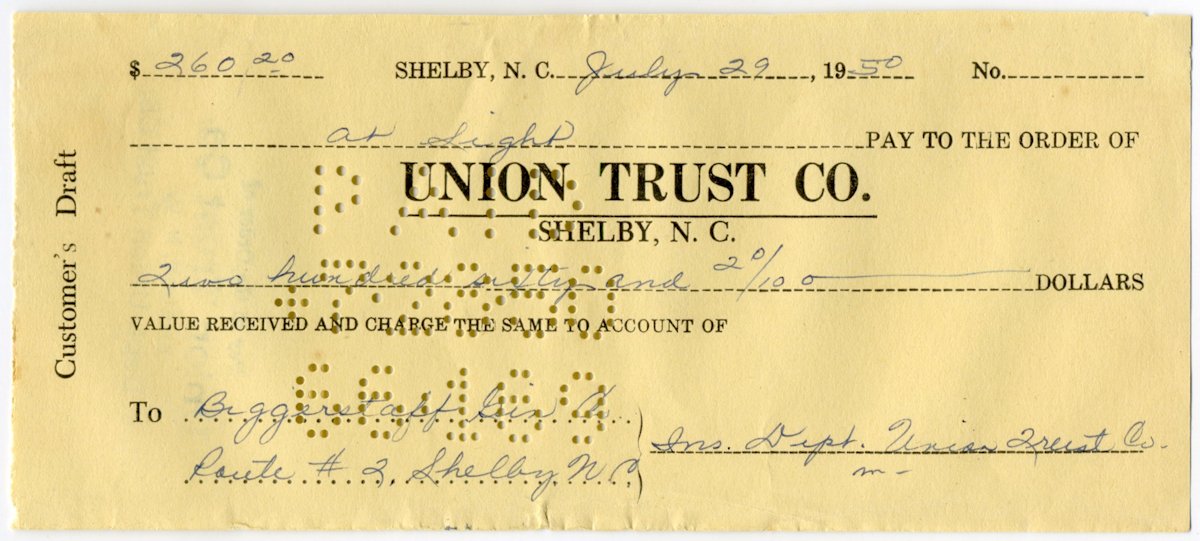 $ 260 20 SHELBY, N. C. July 29, 1950 No.
at sight PAY TO THE ORDER OF
UNION TRUST CO.
SHELBY, N. C.
Two hundred sixty and 20/100 DOLLARS
VALUE RECEIVED AND CHARGE THE SAME TO ACCOUNT OF
To Biggerstaff Gin
Route # 2, Shelby N C
Ins. Dept. Union Trust Co.
Customer's Draft
PAID